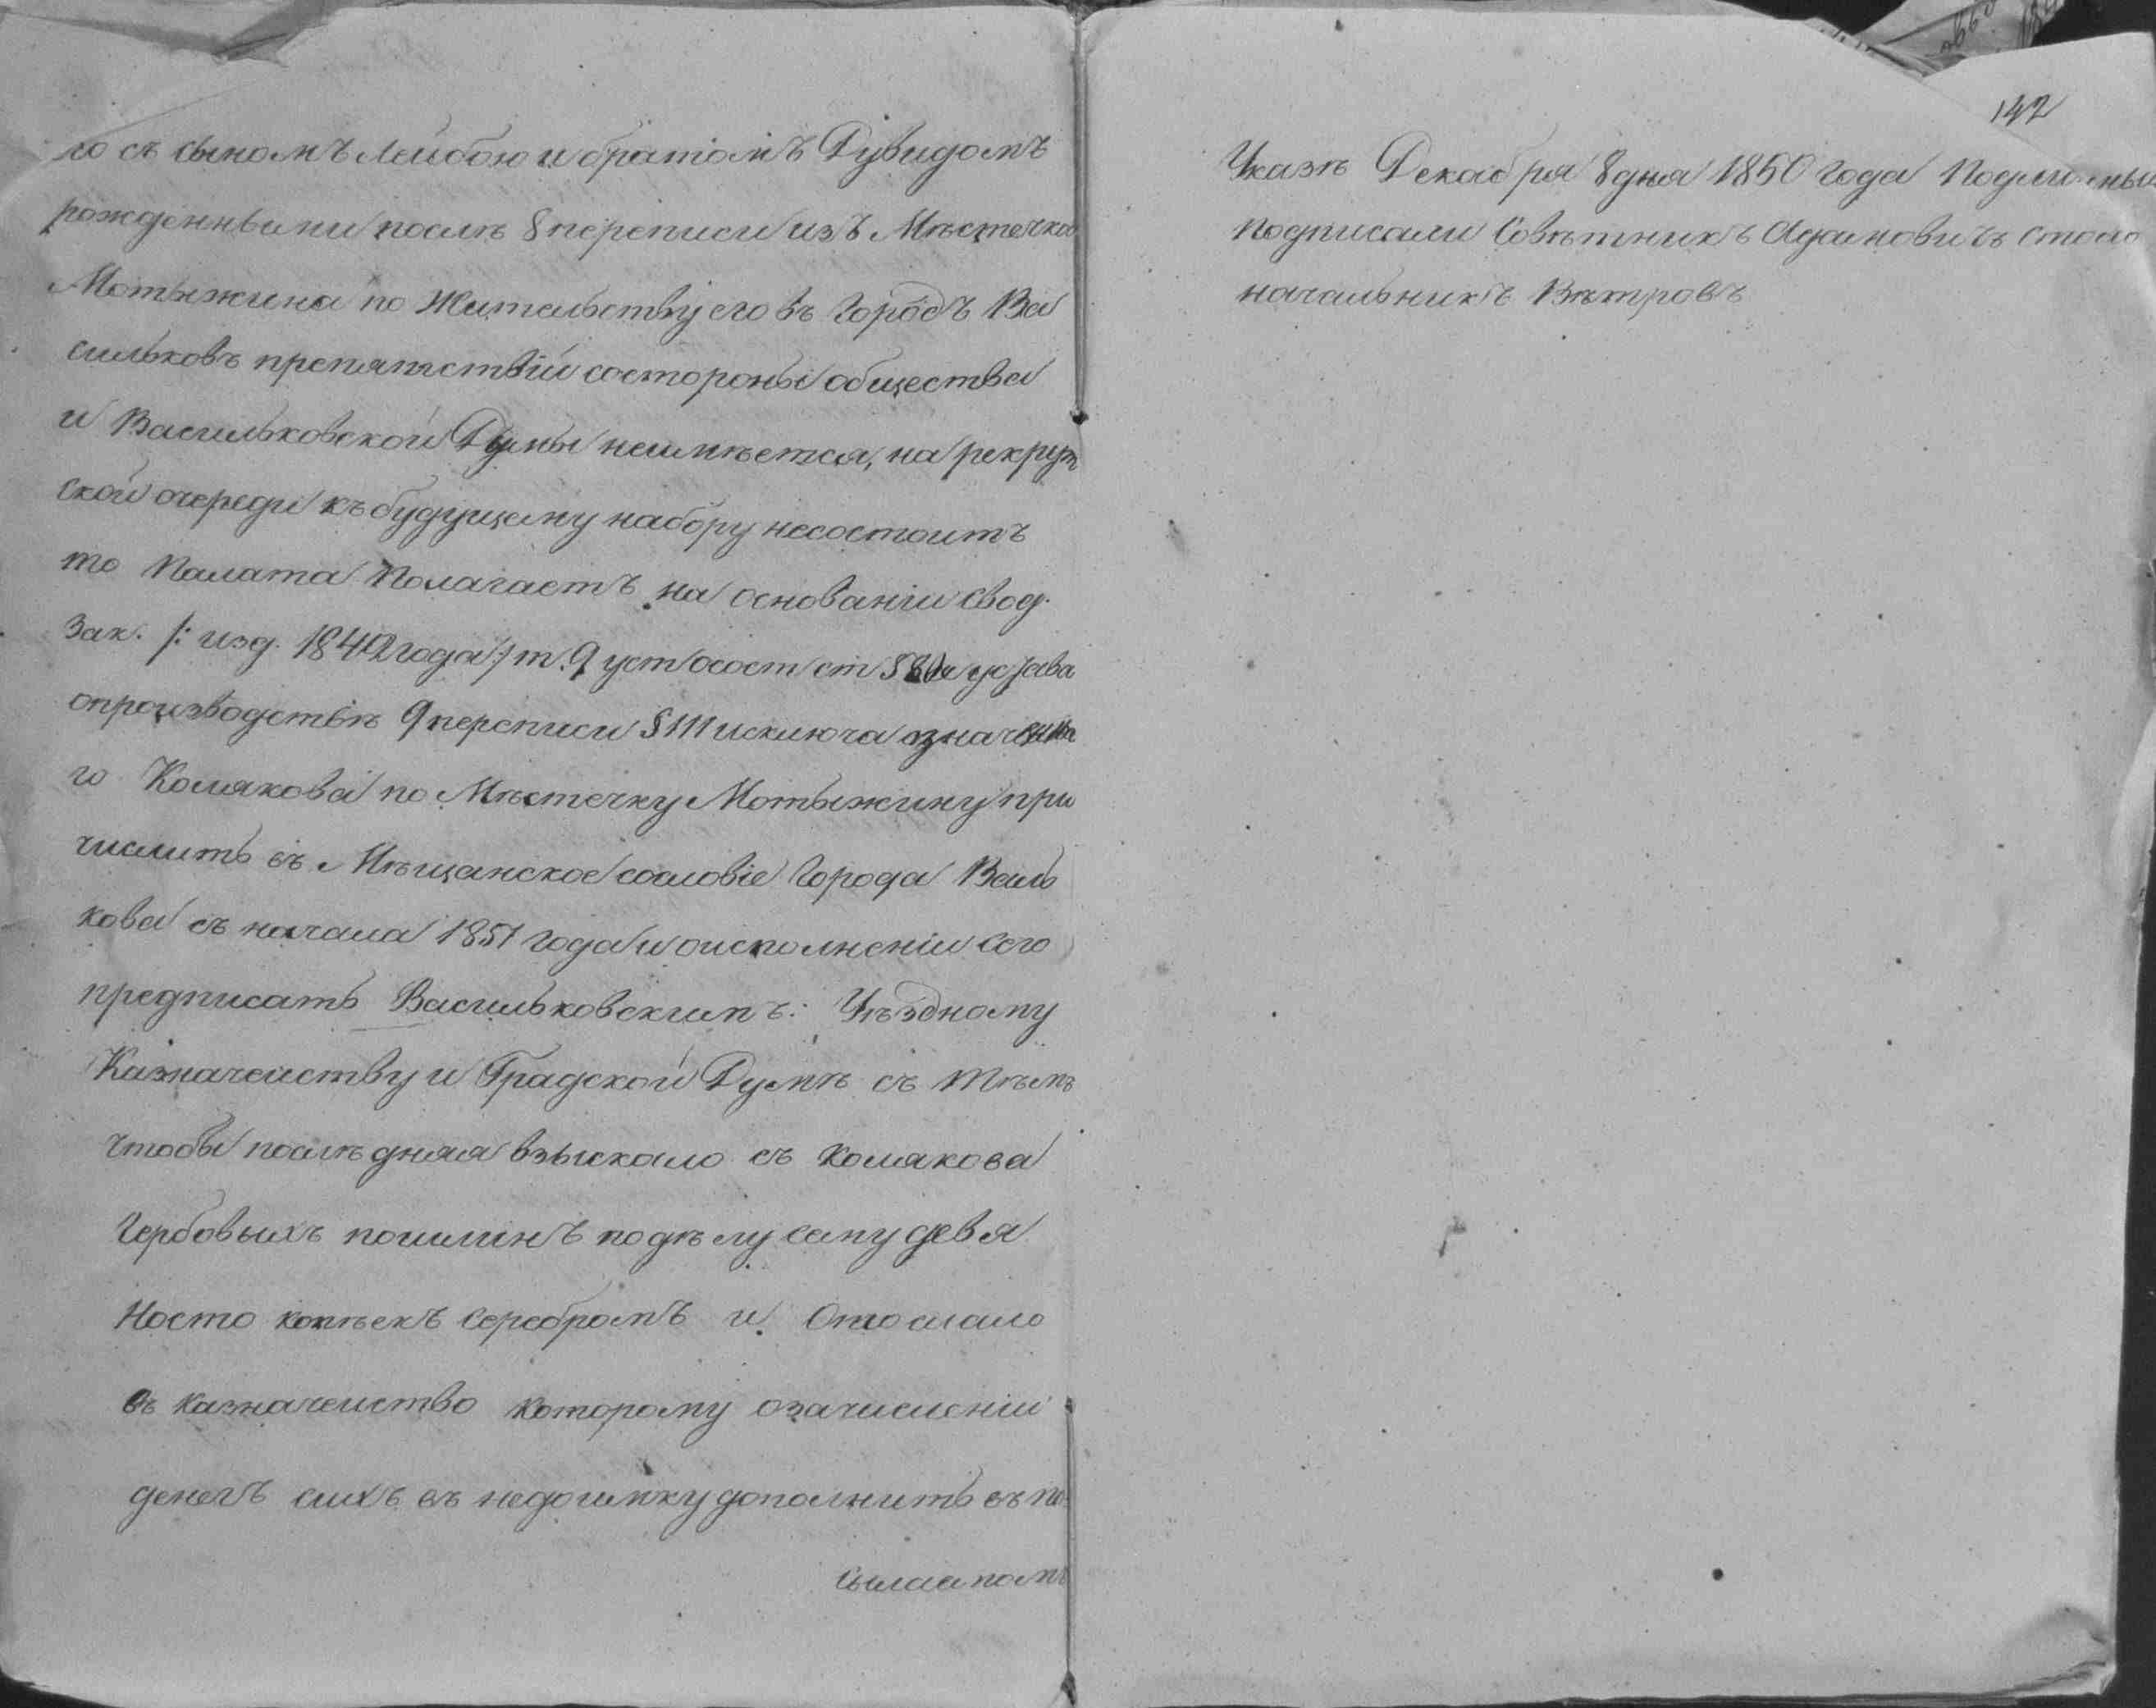 го съ сыномъ Лейбою и братомъ Дувидомъ
рожденными после 8 переписи изъ Мѣстечка
Мотыжина по Жительству его въ Городъ Ва
сильковъ препятствій состороны общества
и Васильковской Думы неимѣется, на рекрут
ской очереди къ будущему набору несостоитъ
то Палата Полагаетъ на основаніи Свод.
Зак. /: изд. 1842 года :/ т. 9 уст осост ст устава
опроизводствѣ 9 переписи § 111 исключа означенна
го Колякова по Мѣстечку Мотыжину при
числить въ Мѣщанское сословіе Города Василь
кова съ начала 1851 года и оисполненіи сего
предписать Васильковскимъ: Уѣздному
Казначейству и Градской Думѣ съ тѣмъ
чтобы послѣдняя взыскало съ Колякова
Гербовыхъ пошлинъ подѣлу сему девя
носто копѣекъ серебромъ и Отослало
въ Казначейство которому озачисленіи
денегъ сихъ въ недоимку дополнить въ по
сылаемомъ
142
Указѣ Декабря 8 дня 1850 года Подлинный
подписали Совѣтникъ Адамовичъ Столо
начальникъ Вѣтровъ